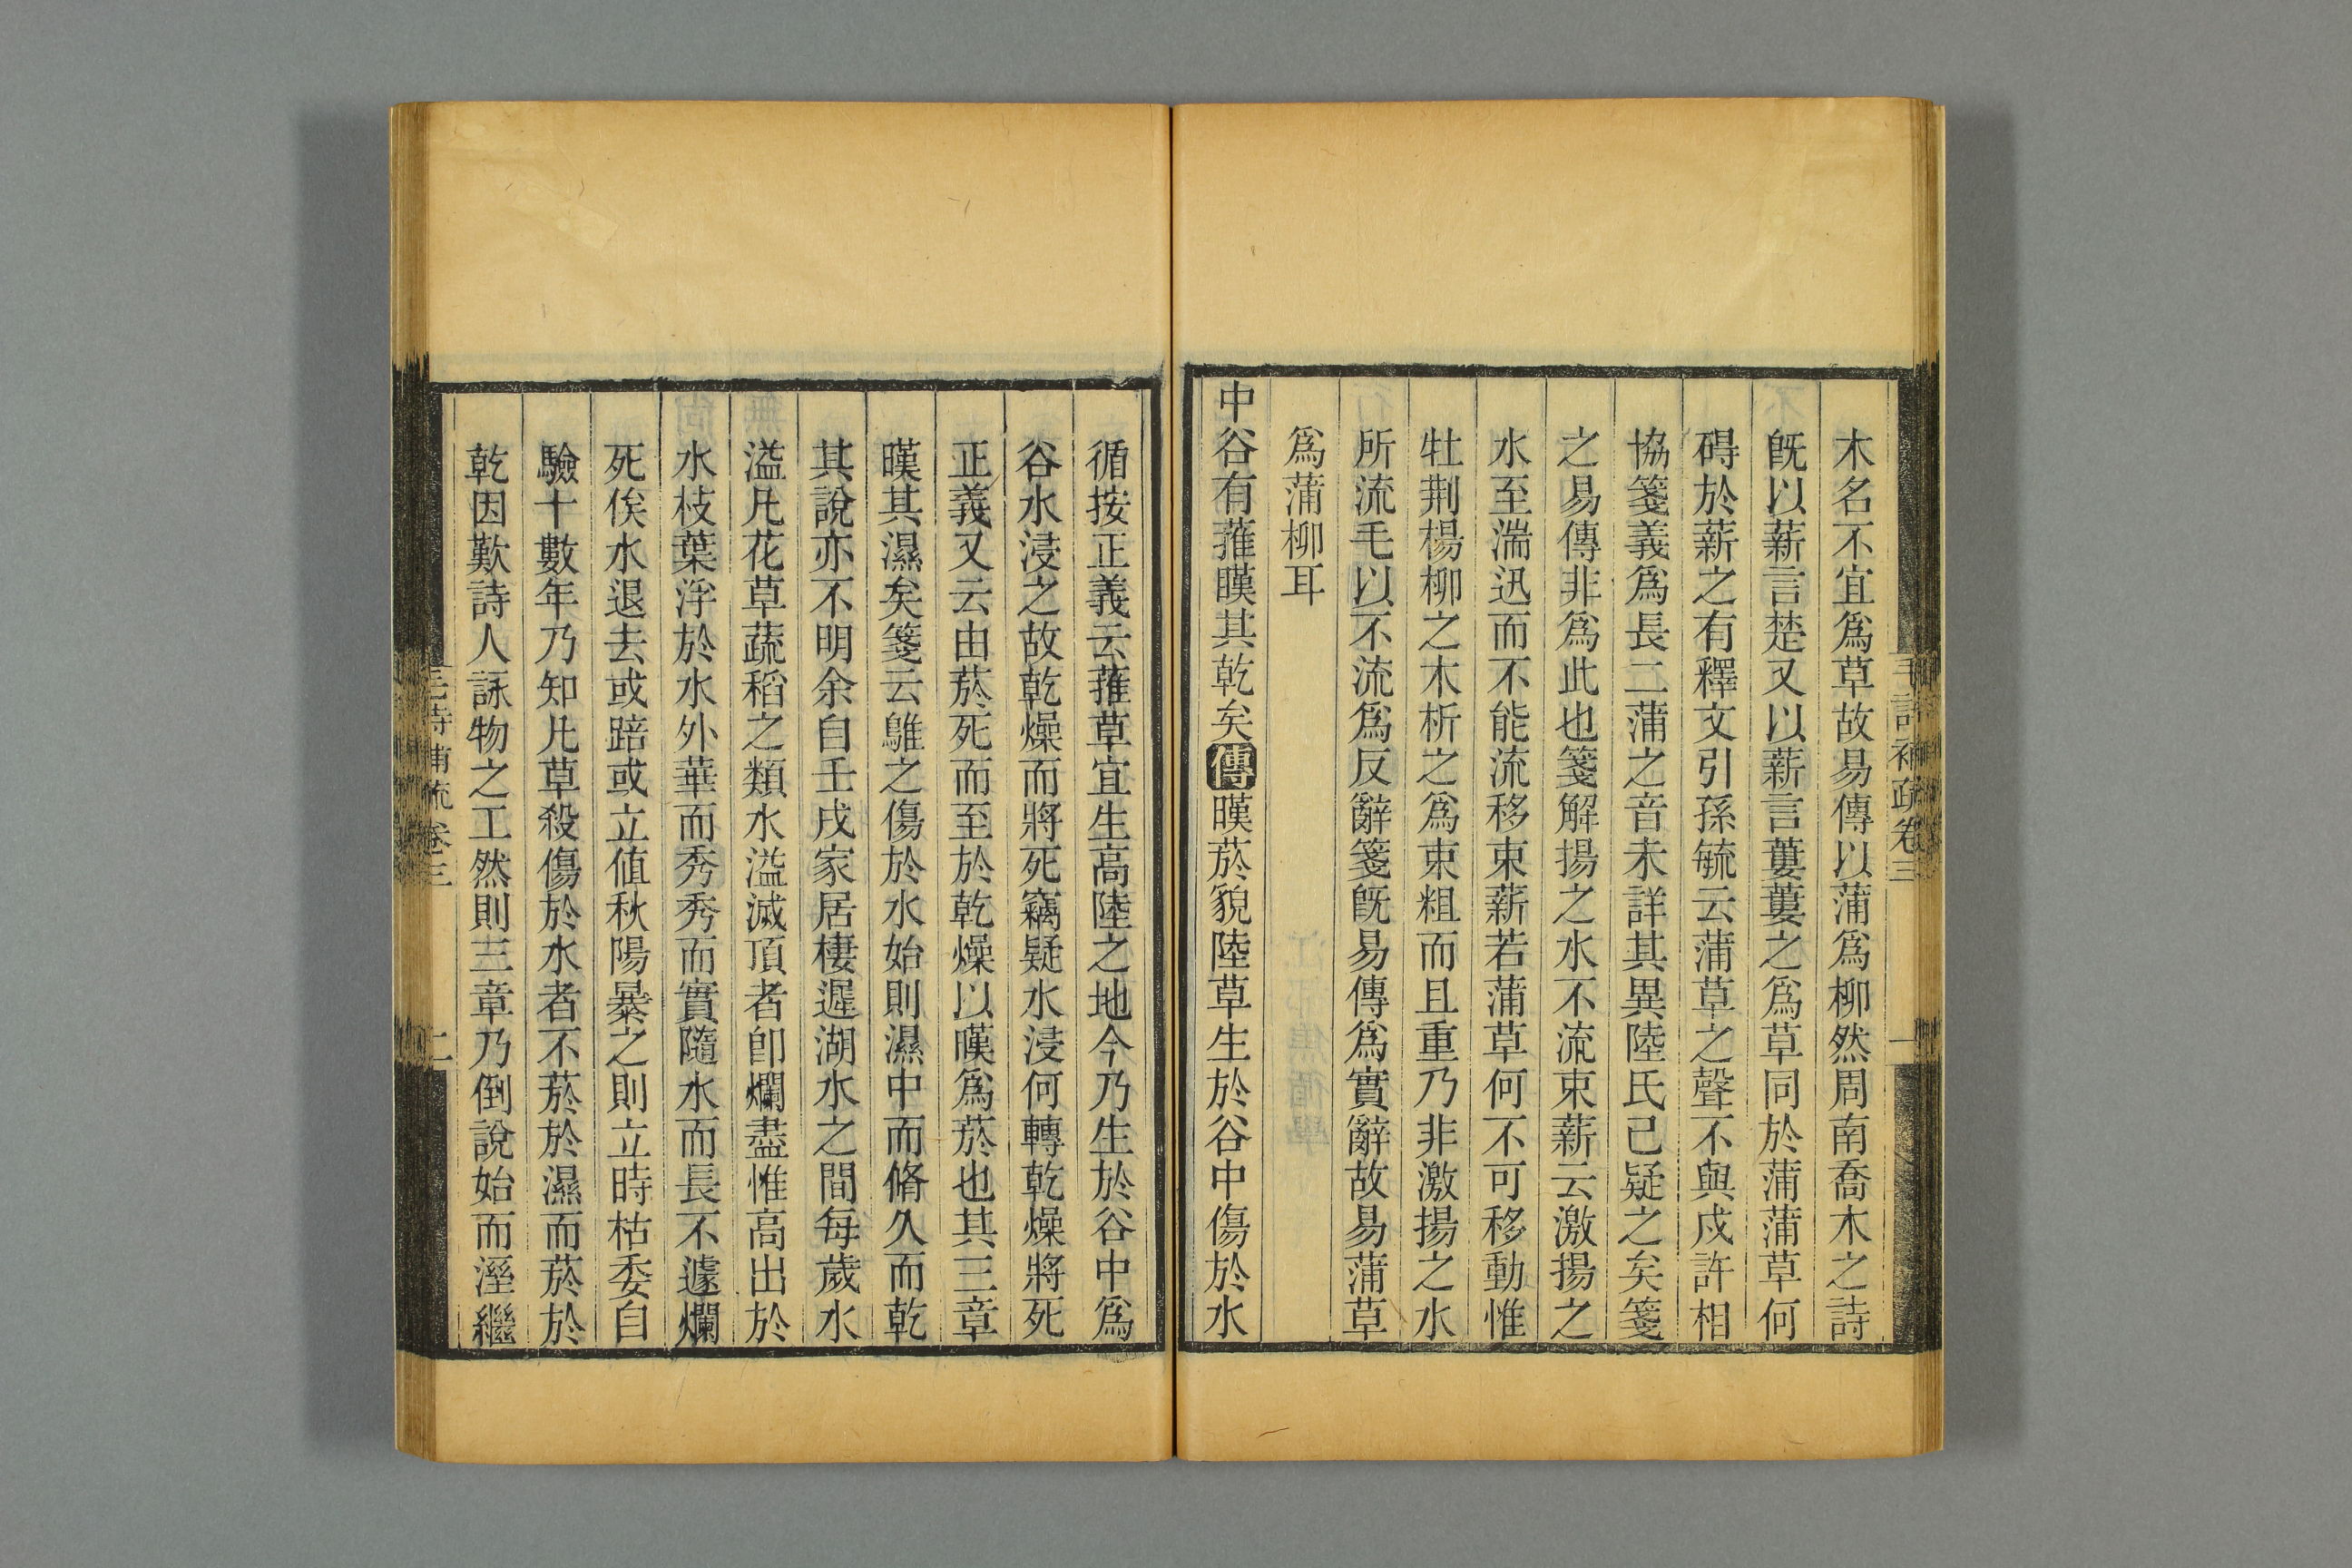 毛詩補疏卷三
一
木名不宜爲草故易傳以蒲爲柳然周南喬木之詩
旣以薪言楚又以薪言蔞蔞之爲草同於蒲蒲草何
碍於薪之有釋文引孫毓云蒲草之聲不與戍許相
協箋義爲長二蒲之音未詳其異陸氏已疑之矣箋
之易傳非爲此也箋解揚之水不流束薪云激揚之
水至湍迅而不能流移束薪若蒲草何不可移動惟
牡荆楊柳之木析之爲束粗而且重乃非激揚之水
所流毛以不流爲反辭箋旣易傳爲實辭故易蒲草
爲蒲柳耳
中谷有蓷暵其乾矣傳暵菸貌陸草生於谷中傷於水
循按正義云蓷草宜生高陸之地今乃生於谷中爲
谷水浸之故乾燥而將死竊疑水浸何轉乾燥將死
正義又云由菸死而至於乾燥以暵爲菸也其三章
暵其濕矣箋云鵻之傷於水始則濕中而脩久而乾
其說亦不明余自壬戌家居棲遲湖水之間每歲水
溢凡花草蔬稻之類水溢滅頂者卽爛盡惟高出於
水枝葉浮於水外華而秀秀而實隨水而長不遽爛
死俟水退去或踣或立値秋陽暴之則立時枯委自
驗十數年乃知凡草殺傷於水者不菸於濕而菸於
乾因歎詩人詠物之工然則三章乃倒說始而溼繼
毛詩補疏卷三
二